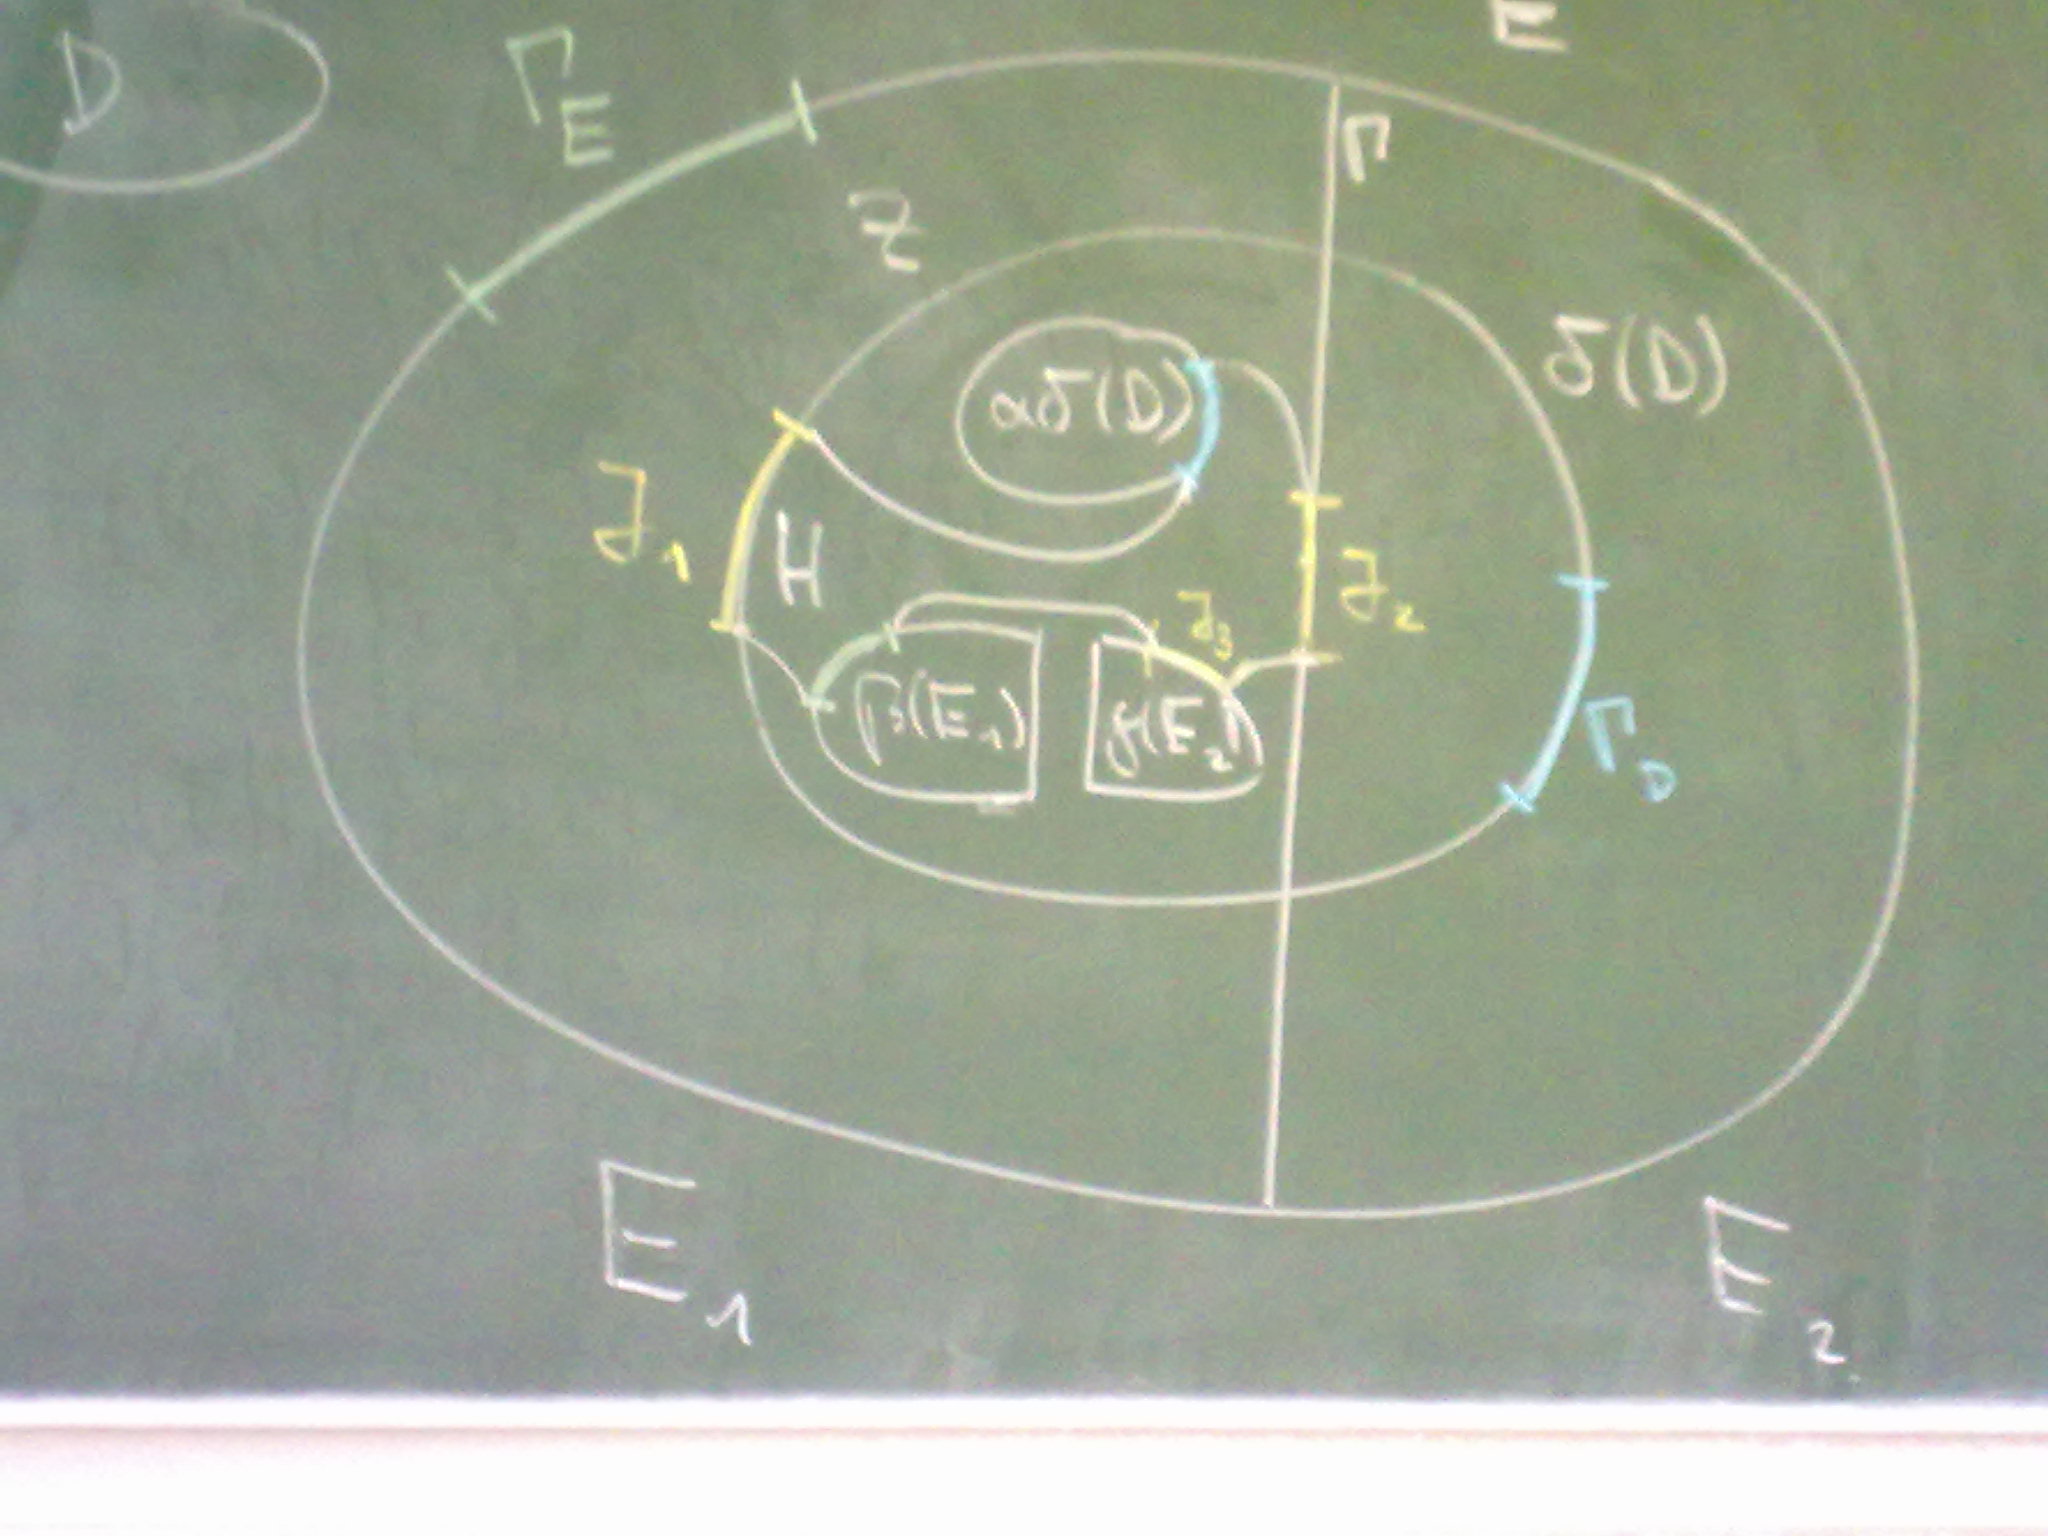 D
Γ_E
E
Γ
Z
δ(D)
αδ(D)
J₁
H
J₂
J₃
β(E₁)
γ(E₂)
Γ_D
E₁
E₂